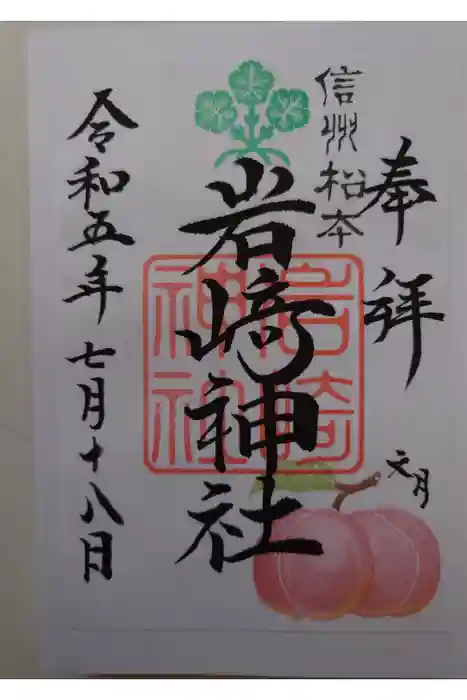 奉拝
信州松本
文月
岩﨑神社
岩崎神社
令和五年七月十八日